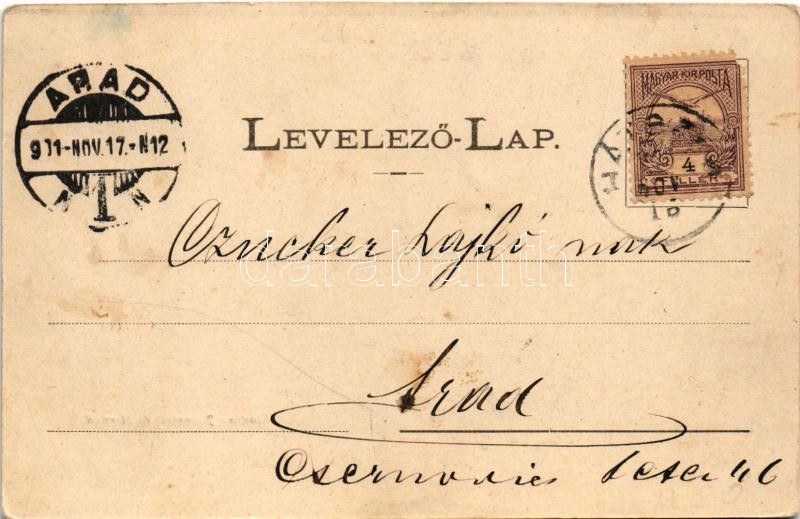 ARAD
901-NOV.17.-N12
LEVELEZŐ-LAP.
MAGYAR KIR. POSTA
4
FILLÉR
NOV
16
Czucker Lajkó nak
darabanth
Arad
Csernovics utca 46